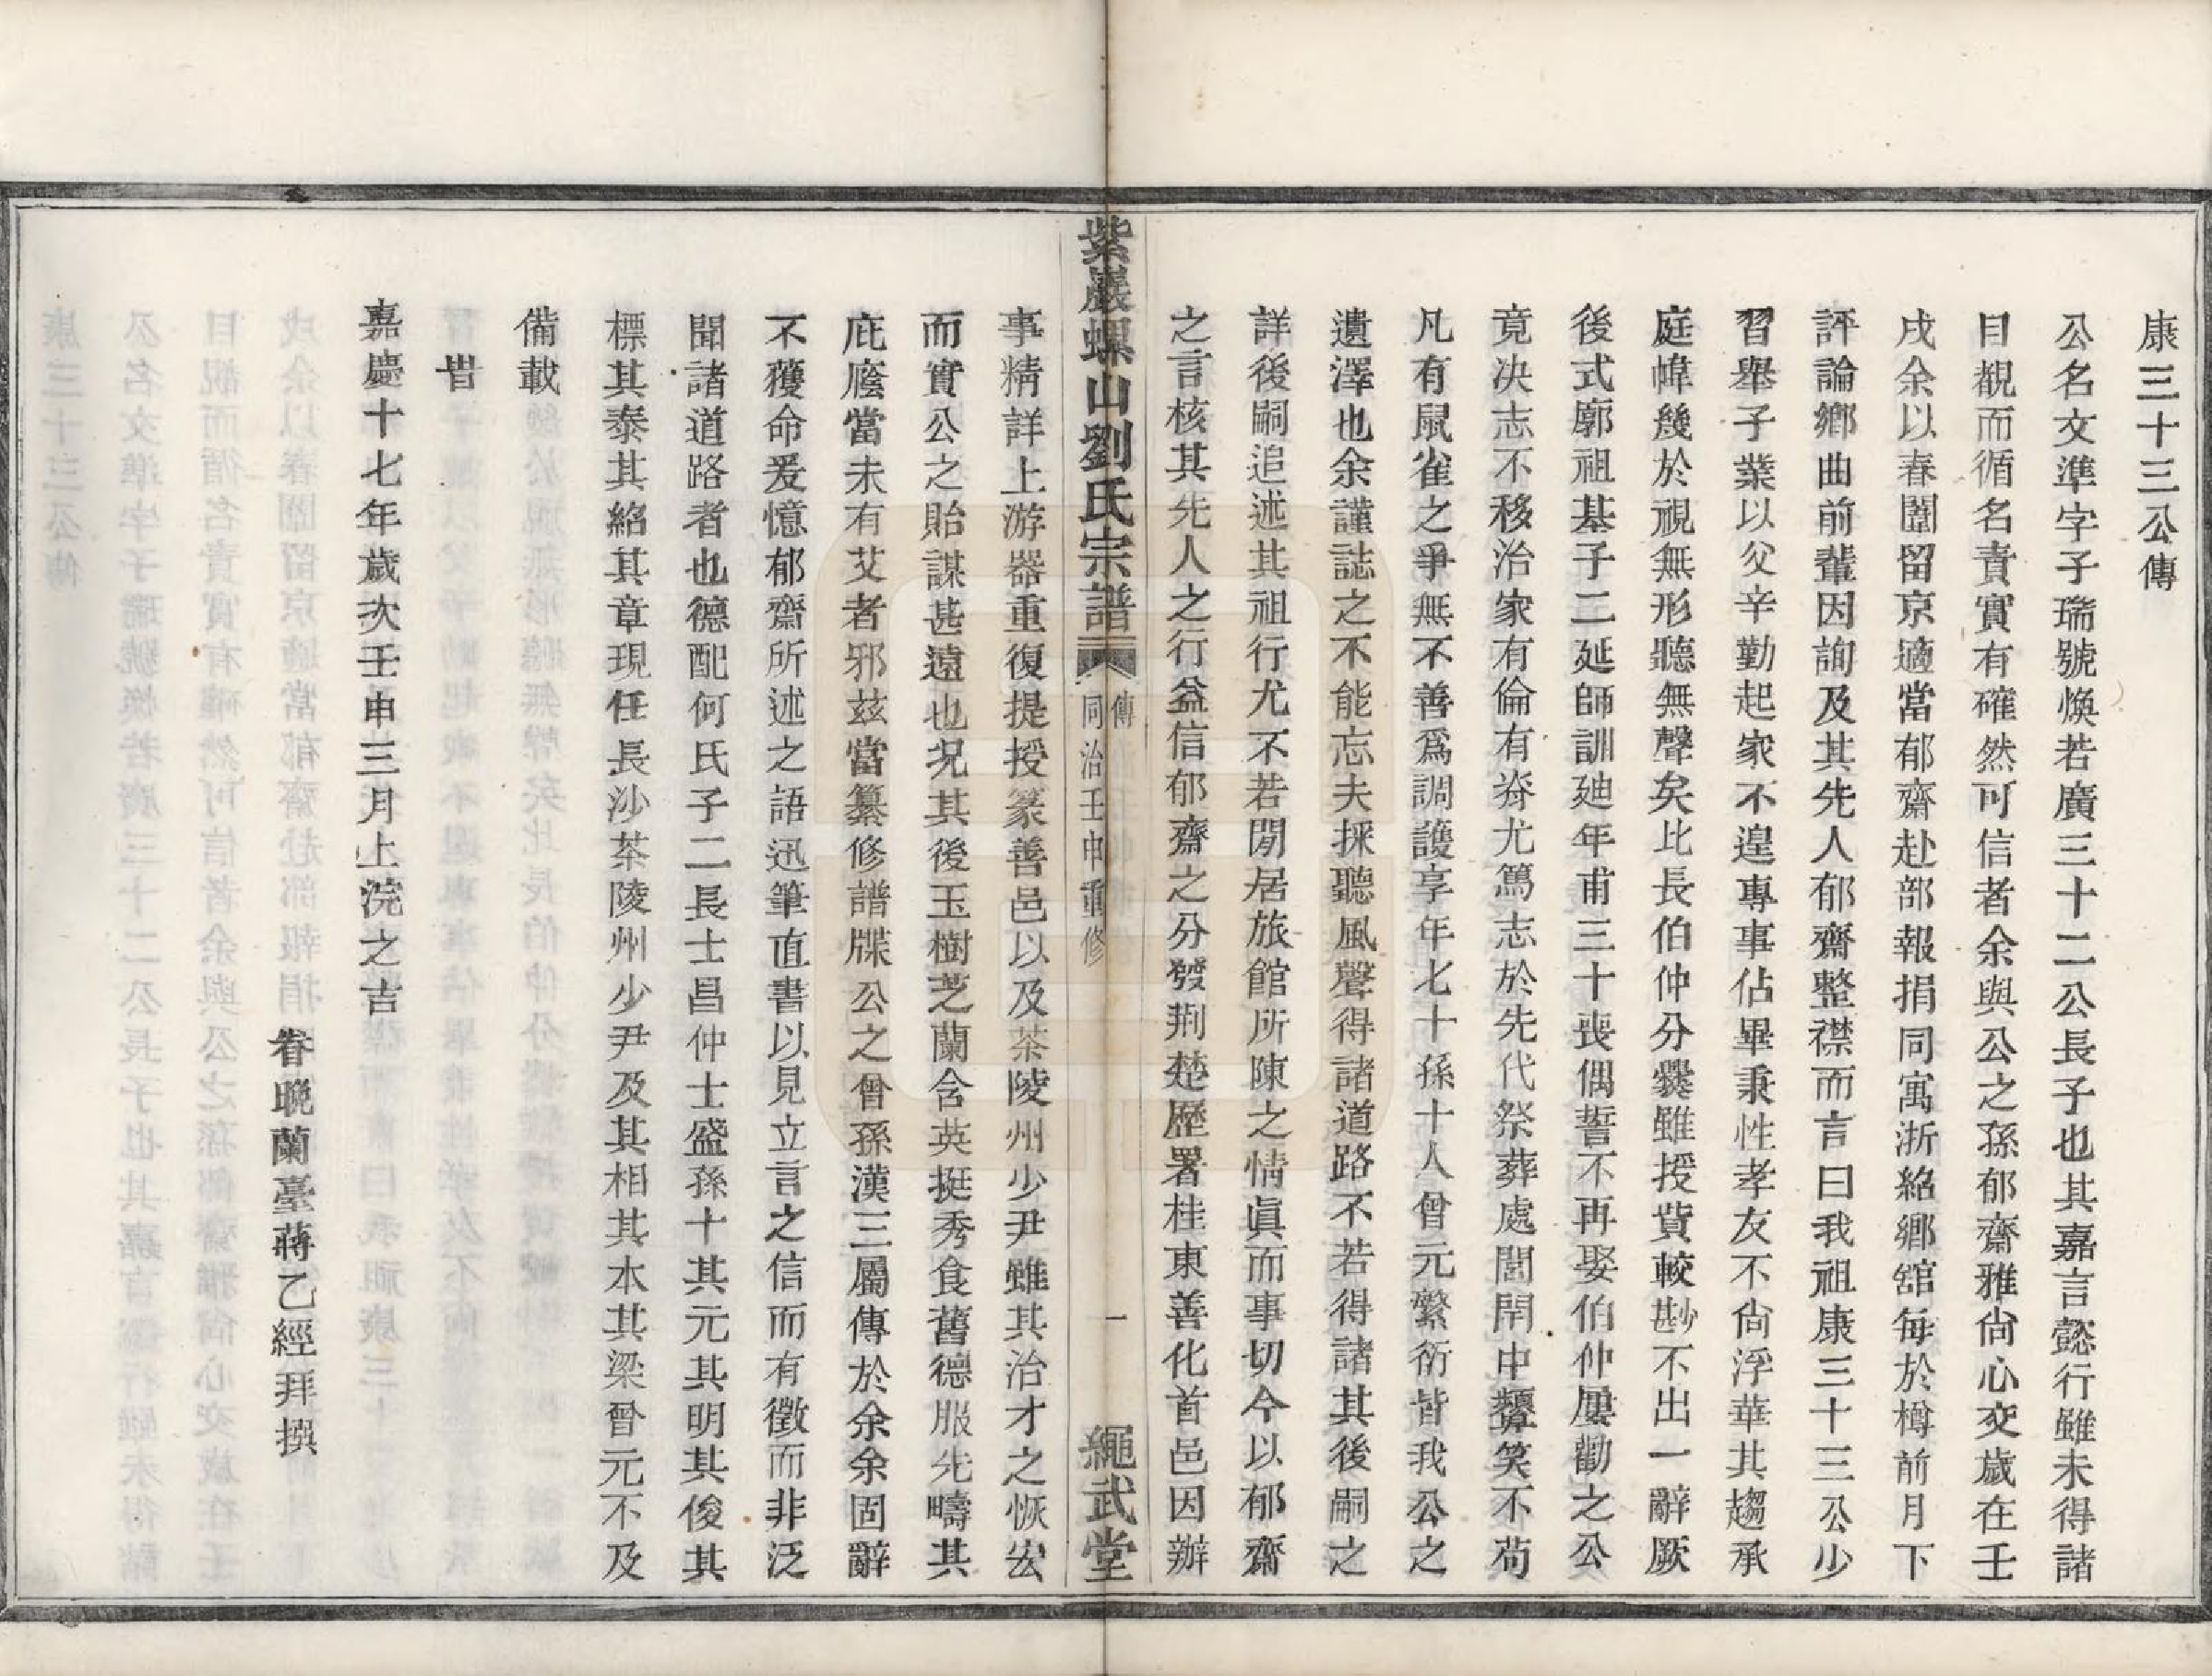 康三十三公傳
公名文準字子瑞號煥若廣三十二公長子也其嘉言懿行雖未得諸
目覩而循名責實有確然可信者余與公之孫郁齋雅尙心交歲在壬
戌余以春闈留京適當郁齋赴部報捐同寓浙紹鄉舘每於樽前月下
評論鄉曲前輩因詢及其先人郁齋整襟而言曰我祖康三十三公少
習舉子業以父辛勤起家不遑專事佔畢秉性孝友不尙浮華其趨承
庭幃幾於視無形聽無聲矣比長伯仲分爨雖授貲較尠不出一辭厥
後式廓祖基子二延師訓廸年甫三十喪偶誓不再娶伯仲屢勸之公
竟决志不移治家有倫有脊尤篤志於先代祭葬處閭閈中顰笑不苟
凡有鼠雀之爭無不善爲調護享年七十孫十人曾元繁衍皆我公之
遺澤也余謹誌之不能忘夫採聽風聲得諸道路不若得諸其後嗣之
詳後嗣追述其祖行尤不若閒居旅館所陳之情眞而事切今以郁齋
之言核其先人之行益信郁齋之分發荆楚歷署桂東善化首邑因辦
紫巖螺山劉氏宗譜
傳
同治壬申重修
一
繩武堂
事精詳上游器重復提授篆善邑以及茶陵州少尹雖其治才之恢宏
而實公之貽謀甚遠也况其後玉樹芝蘭含英挺秀食舊德服先疇其
庇廕當未有艾者邪茲當纂修譜牒公之曾孫漢三屬傳於余余固辭
不獲命爰憶郁齋所述之語迅筆直書以見立言之信而有徵而非泛
聞諸道路者也德配何氏子二長士昌仲士盛孫十其元其明其俊其
標其泰其紹其章現任長沙茶陵州少尹及其相其本其梁曾元不及
備載
旹
嘉慶十七年歲次壬申三月上浣之吉
眷晚蘭臺蔣乙經拜撰